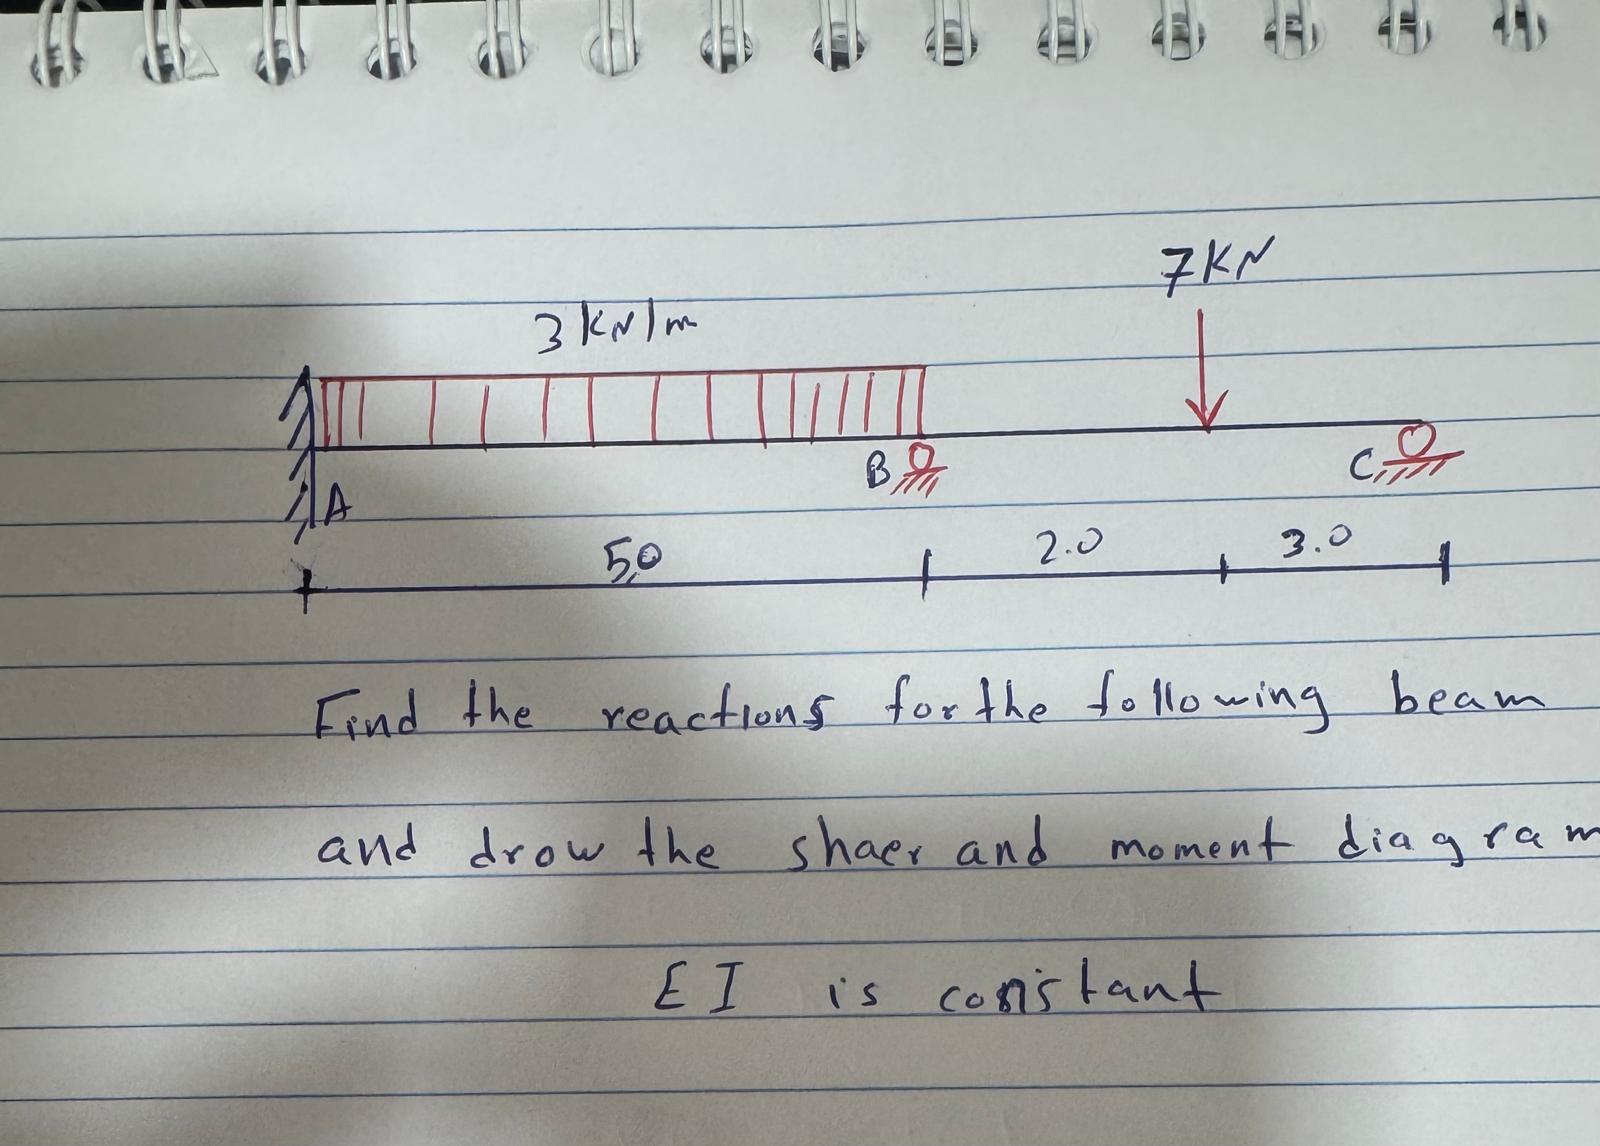 7KN
3 kN/m
B
C
A
5,0
2.0
3.0
Find the reactions for the following beam
and drow the shaer and moment diagram
EI is constant